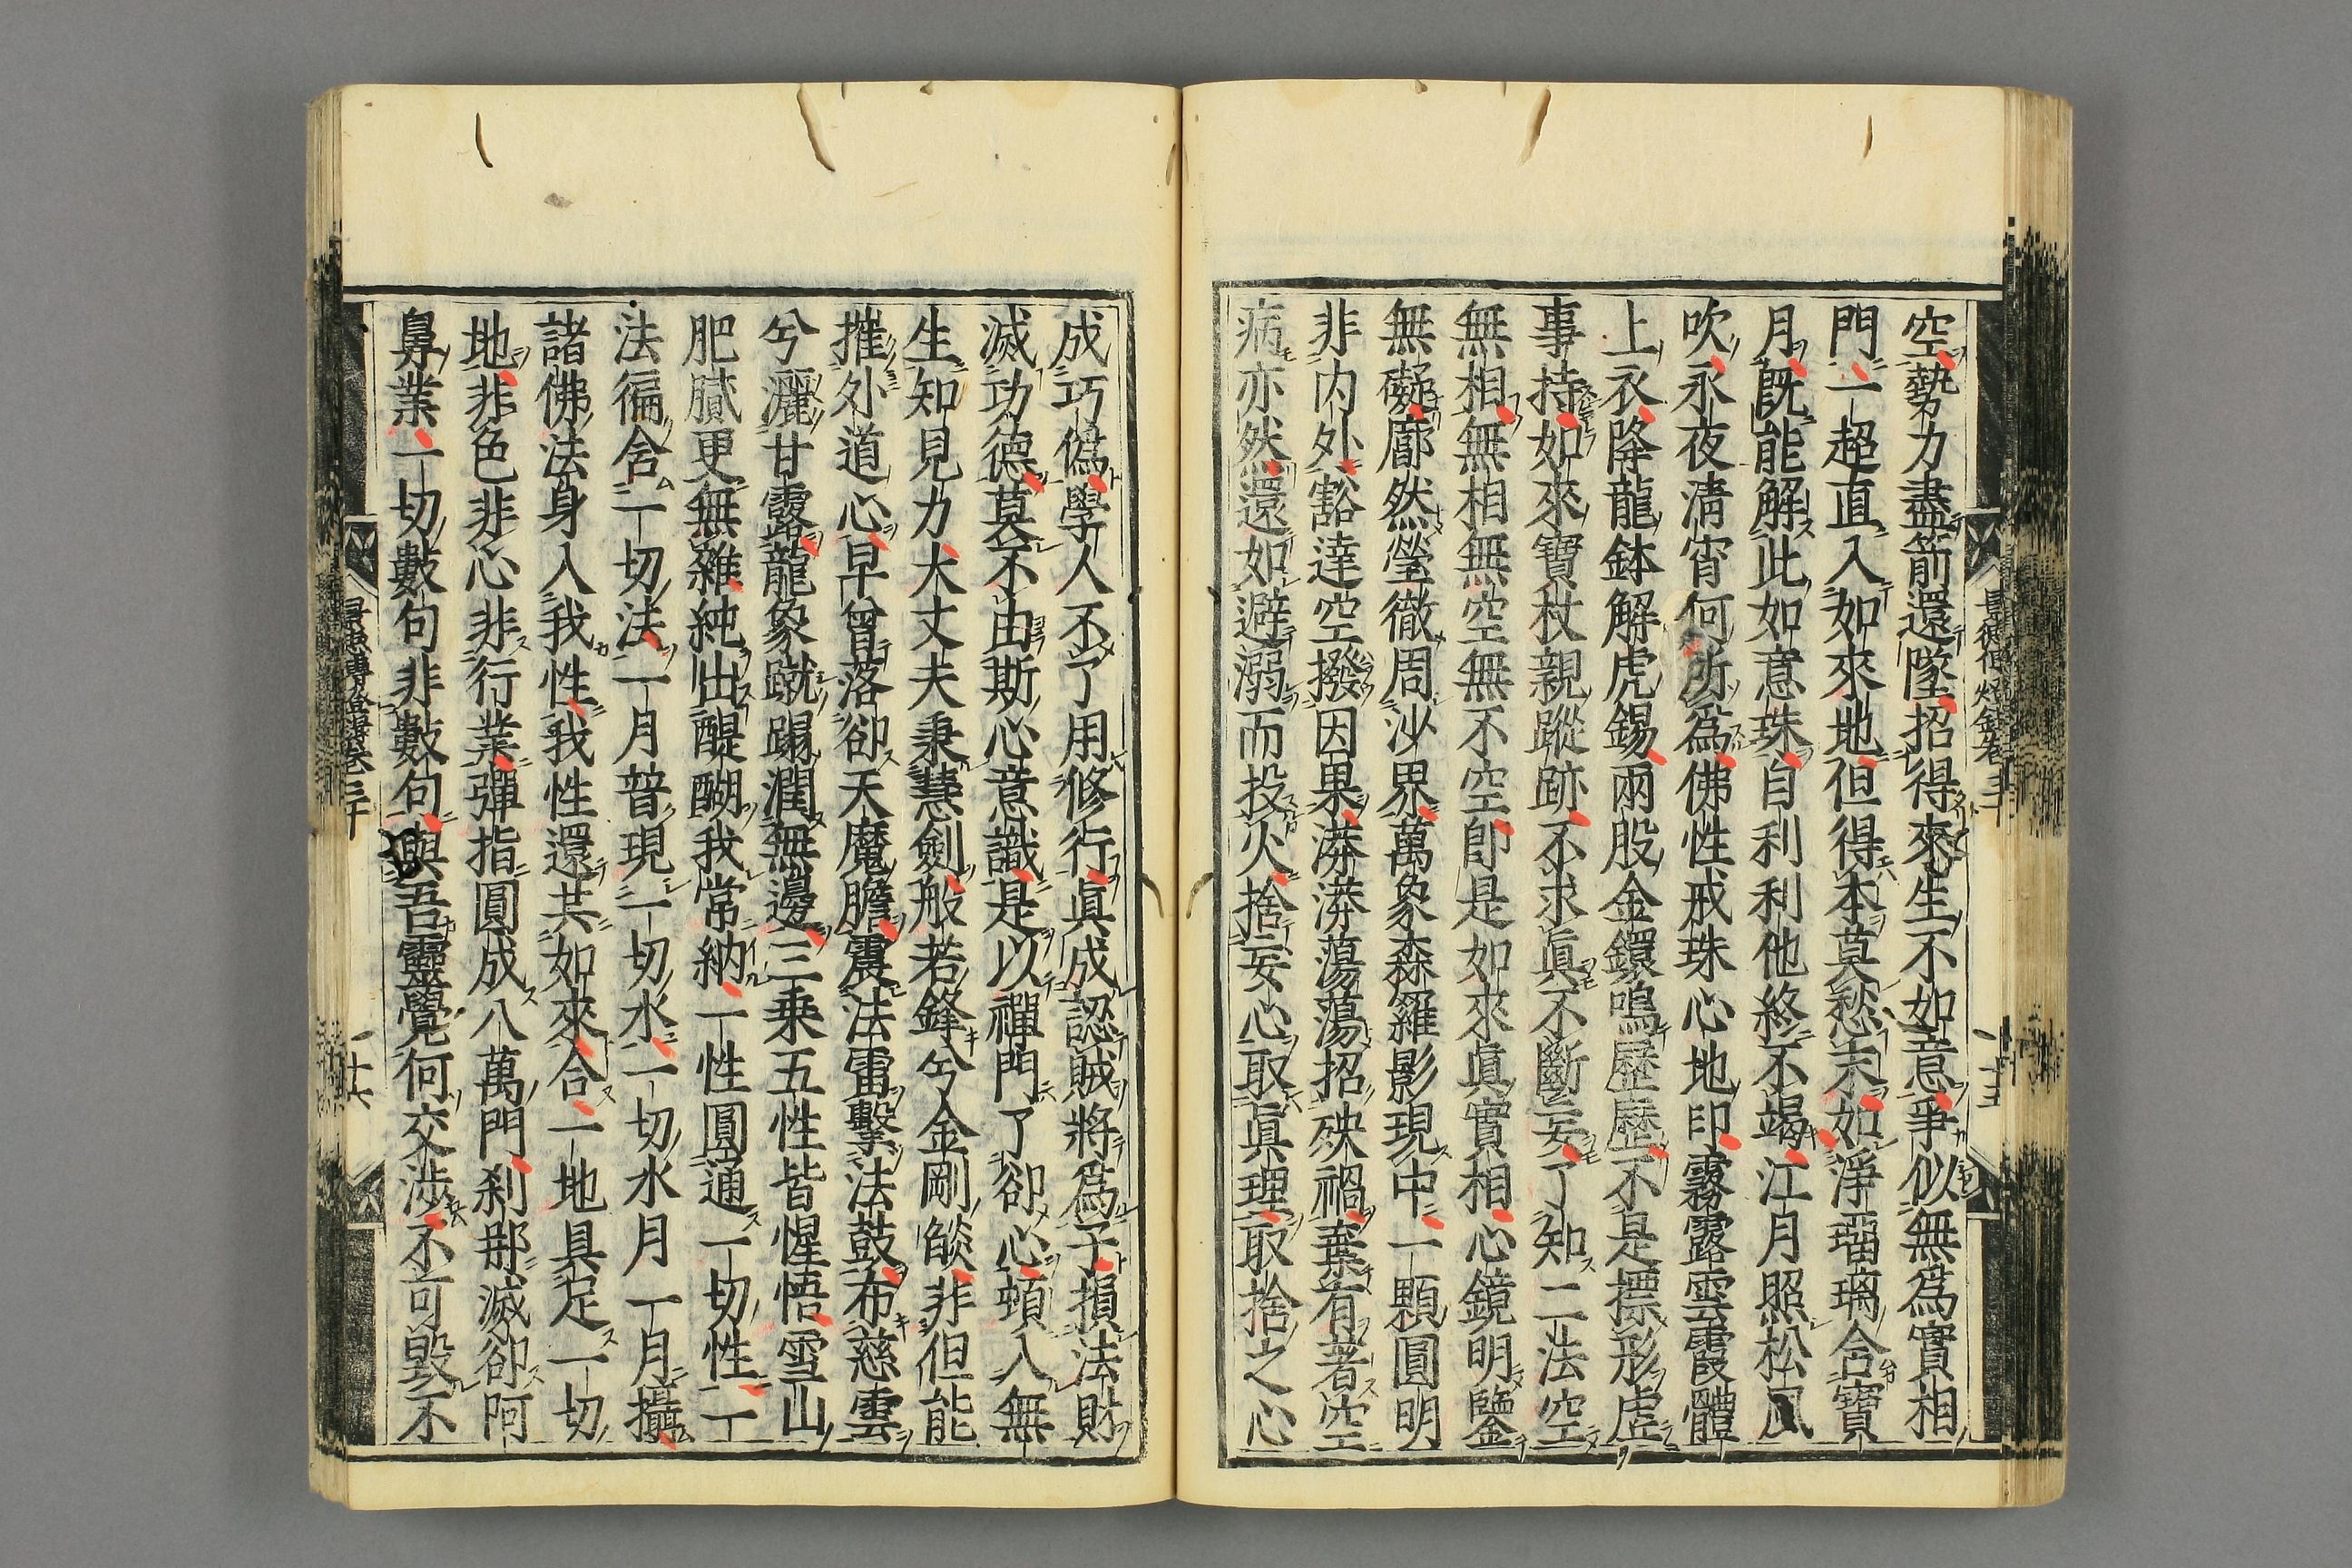 空勢力盡箭還墜招得來生不如意爭似無爲實相
門一超直入如來地但得本莫愁末如淨瑠璃含寶
月既能解此如意珠自利利他終不竭江月照松風
吹永夜淸宵何所爲佛性戒珠心地印霧露雲霞體
上衣降龍鉢解虎錫兩股金鐶鳴歷歷不是摽形虛
事持如來寶杖親蹤跡不求眞不斷妄了知二法空
無相無相無空無不空卽是如來眞實相心鏡明鑒
無礙廓然瑩徹周沙界萬象森羅影現中一顆圓明
非内外豁達空撥因果漭漭蕩蕩招殃禍棄有著空
病亦然還如避溺而投火捨妄心取眞理取捨之心
成巧僞學人不了用修行眞成認賊將爲子損法財
滅功德莫不由斯心意識是以禪門了卻心頓入無
生知見力大丈夫秉慧劍般若鋒兮金剛燄非但能
摧外道心早曾落卻天魔膽震法雷擊法鼓布慈雲
兮灑甘露龍象蹴蹋潤無邊三乘五性皆惺悟雪山
肥膩更無雜純出醍醐我常納一性圓通一切性一
法徧含一切法一月普現一切水一切水月一月攝
諸佛法身入我性我性還共如來合一地具足一切
地非色非心非行業彈指圓成八萬門刹那滅卻阿
鼻業一切數句非數句與吾靈覺何交涉不可毀不
景德傳登錄卷三十
十六